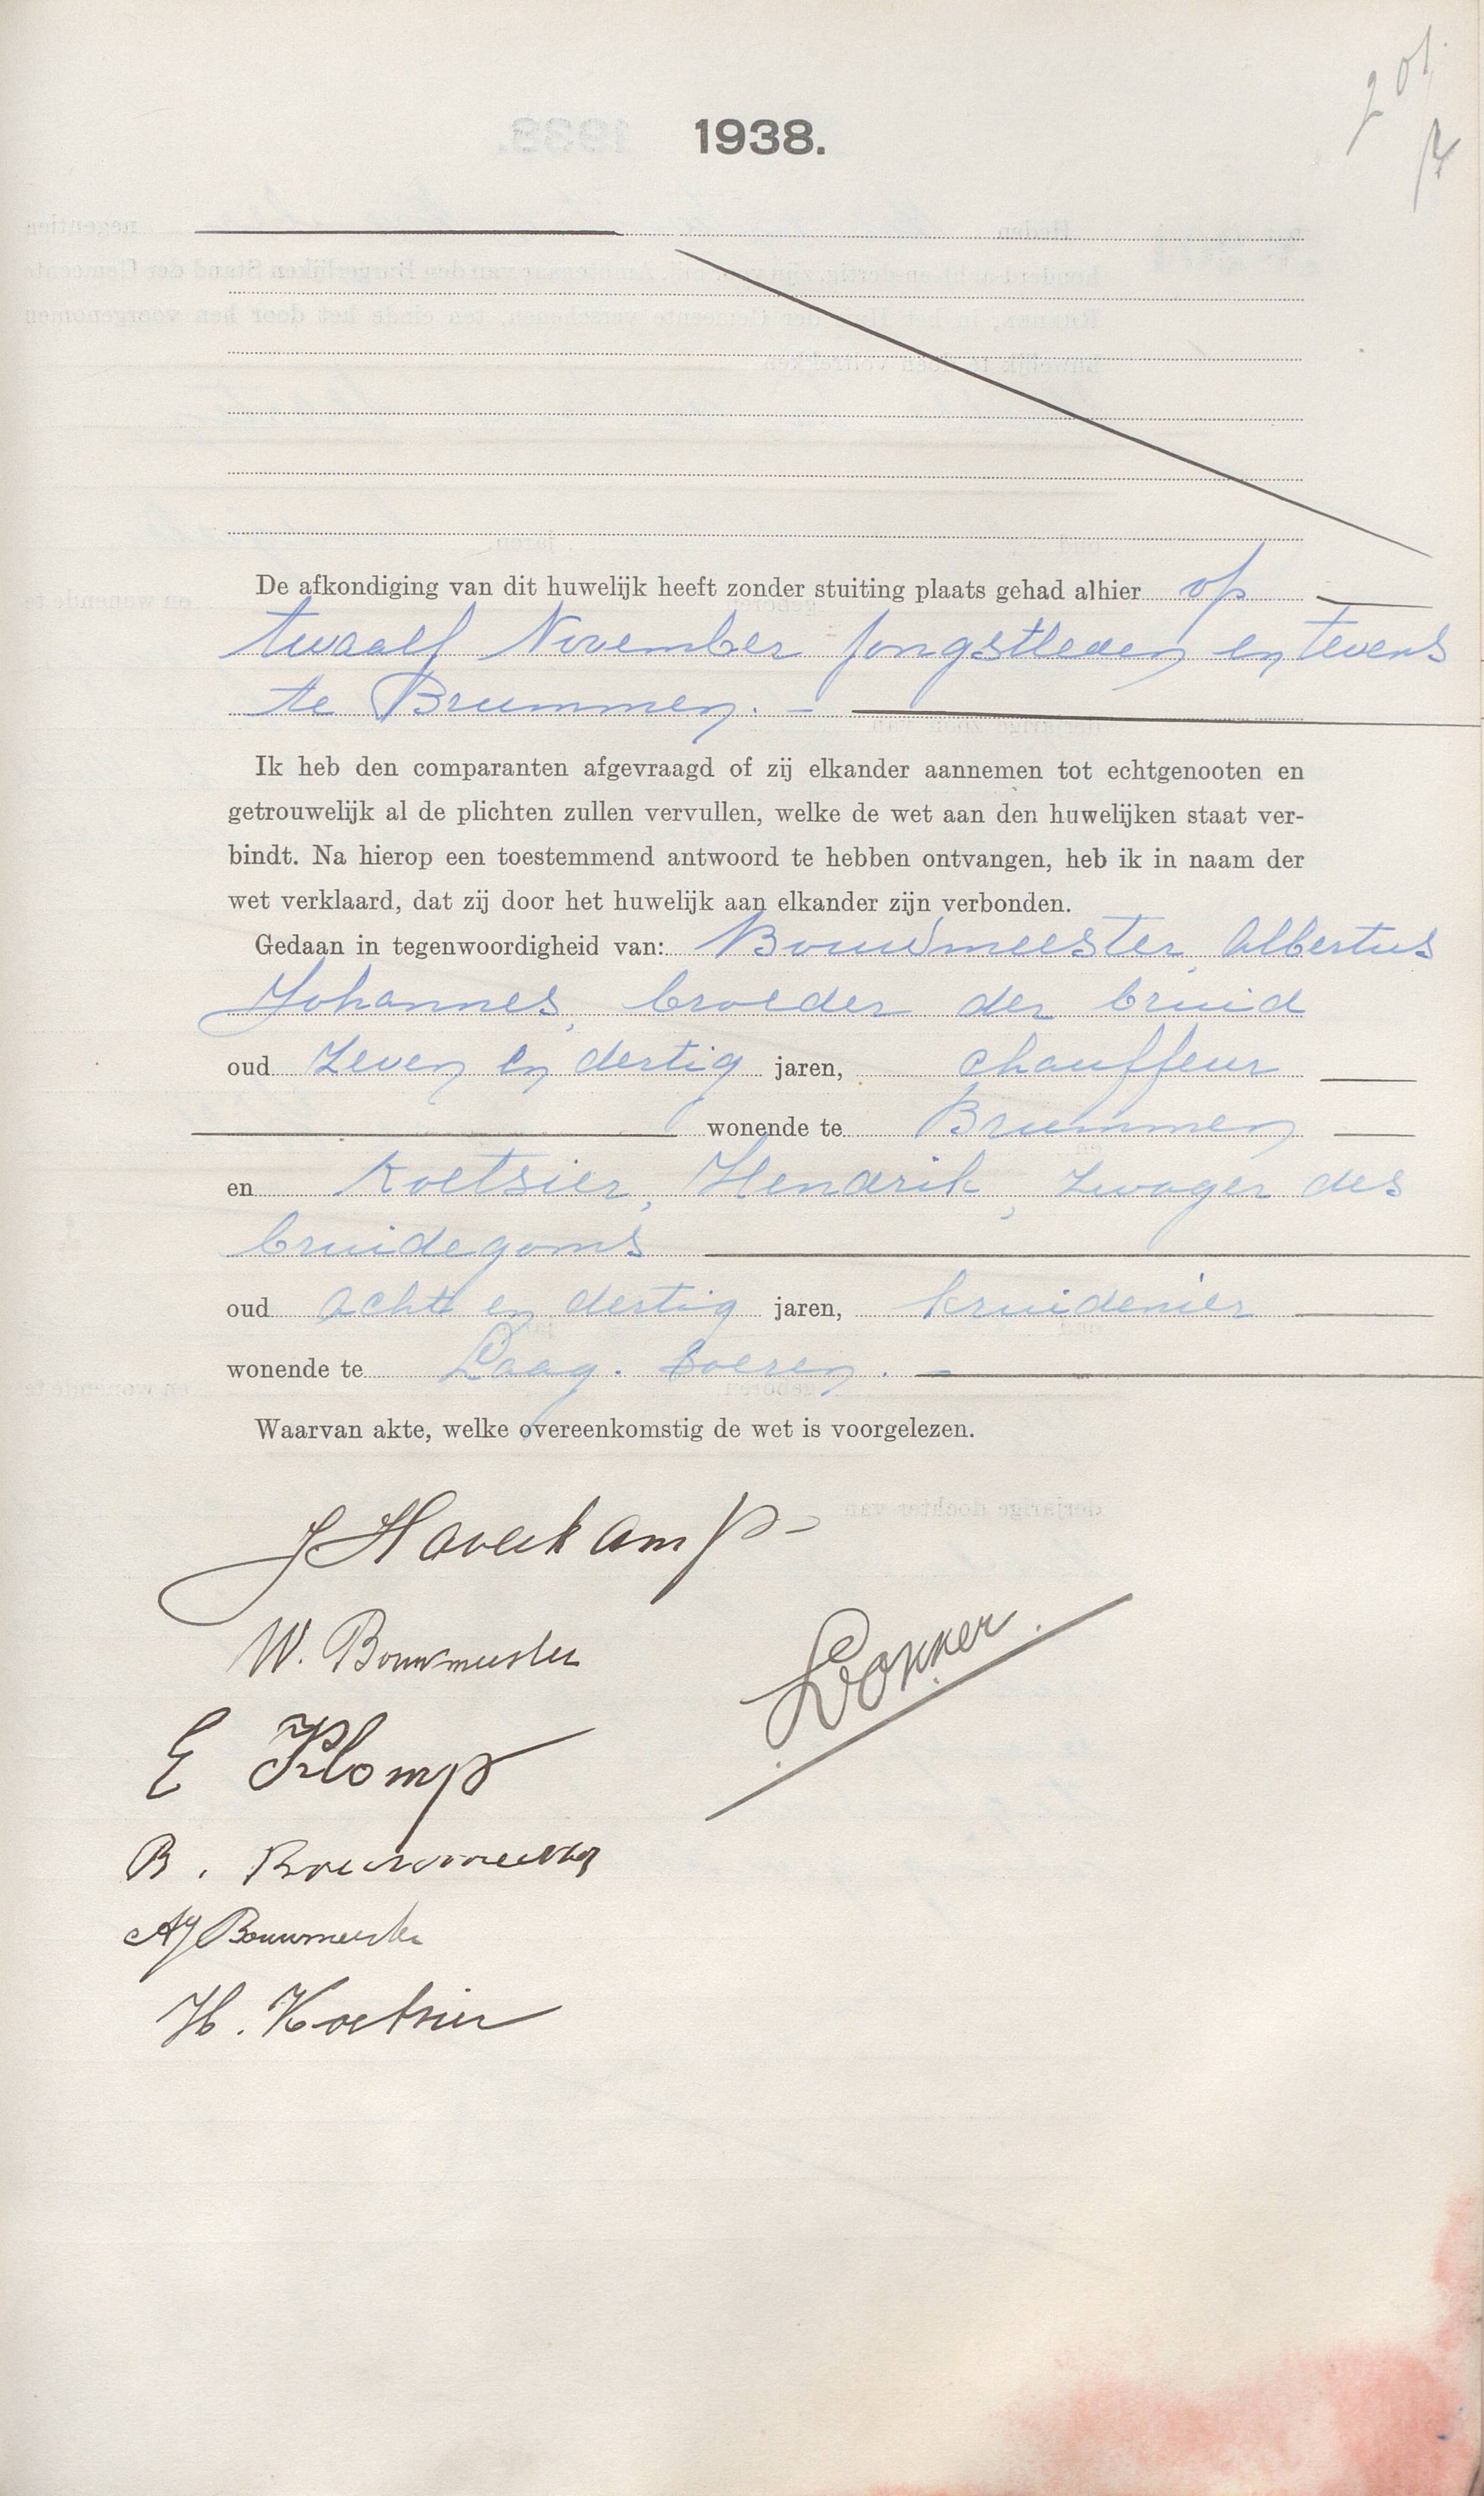 201
1938.
De afkondiging van dit huwelijk heeft zonder stuiting plaats gehad alhier op
twaalf November jongstleden en tevens
te Brummen. –
Ik heb den comparanten afgevraagd of zij elkander aannemen tot echtgenooten en
getrouwelijk al de plichten zullen vervullen, welke de wet aan den huwelijken staat ver-
bindt. Na hierop een toestemmend antwoord te hebben ontvangen, heb ik in naam der
wet verklaard, dat zij door het huwelijk aan elkander zijn verbonden.
Gedaan in tegenwoordigheid van: Bouwmeester, Albertus
Johannes, broeder der bruid
oud zeven en dertig jaren, chauffeur
wonende te Brummen
en Koetsier, Hendrik, zwager des
bruidegoms
oud acht en dertig jaren, kruidenier
wonende te Laag. Soeren. –
Waarvan akte, welke overeenkomstig de wet is voorgelezen.
J Haverkamp
W. Bouwmeester
Lokker.
E Klomp
B. Bouwmeester
AJ Bouwmeester
H. Koetsier